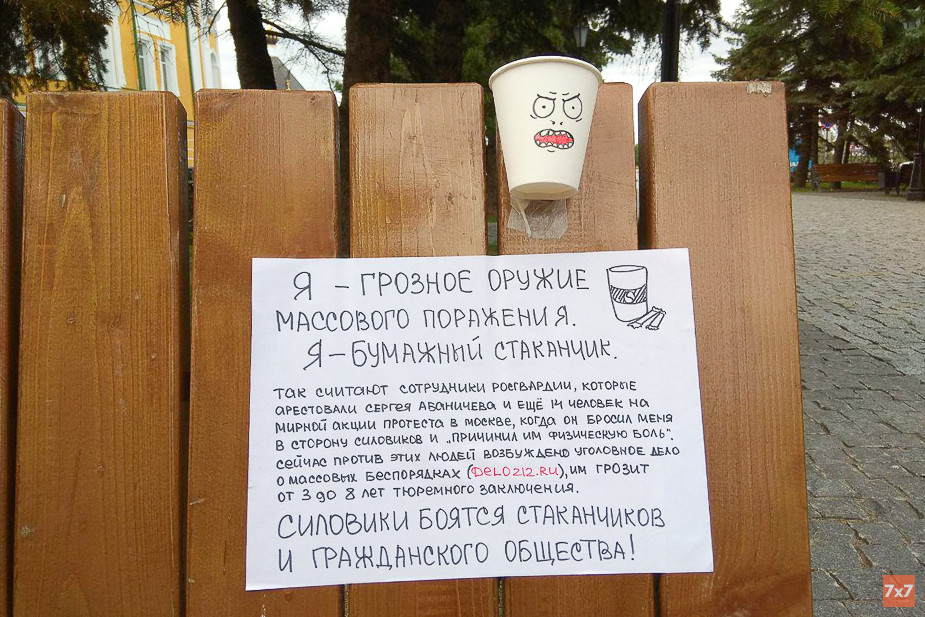 Я - ГРОЗНОЕ ОРУЖИЕ
МАССОВОГО ПОРАЖЕНИЯ.
Я - БУМАЖНЫЙ СТАКАНЧИК.
ТАК СЧИТАЮТ СОТРУДНИКИ РОСГВАРДИИ, КОТОРЫЕ
АРЕСТОВАЛИ СЕРГЕЯ АБАНИЧЕВА И ЕЩЁ 14 ЧЕЛОВЕК НА
МИРНОЙ АКЦИИ ПРОТЕСТА В МОСКВЕ, КОГДА ОН БРОСИЛ МЕНЯ
В СТОРОНУ СИЛОВИКОВ И „ПРИЧИНИЛ ИМ ФИЗИЧЕСКУЮ БОЛЬ".
СЕЙЧАС ПРОТИВ ЭТИХ ЛЮДЕЙ ВОЗБУЖДЕНО УГОЛОВНОЕ ДЕЛО
О МАССОВЫХ БЕСПОРЯДКАХ (DELO212.RU), ИМ ГРОЗИТ
ОТ 3 ДО 8 ЛЕТ ТЮРЕМНОГО ЗАКЛЮЧЕНИЯ.
СИЛОВИКИ БОЯТСЯ СТАКАНЧИКОВ
И ГРАЖДАНСКОГО ОБЩЕСТВА!
7x7